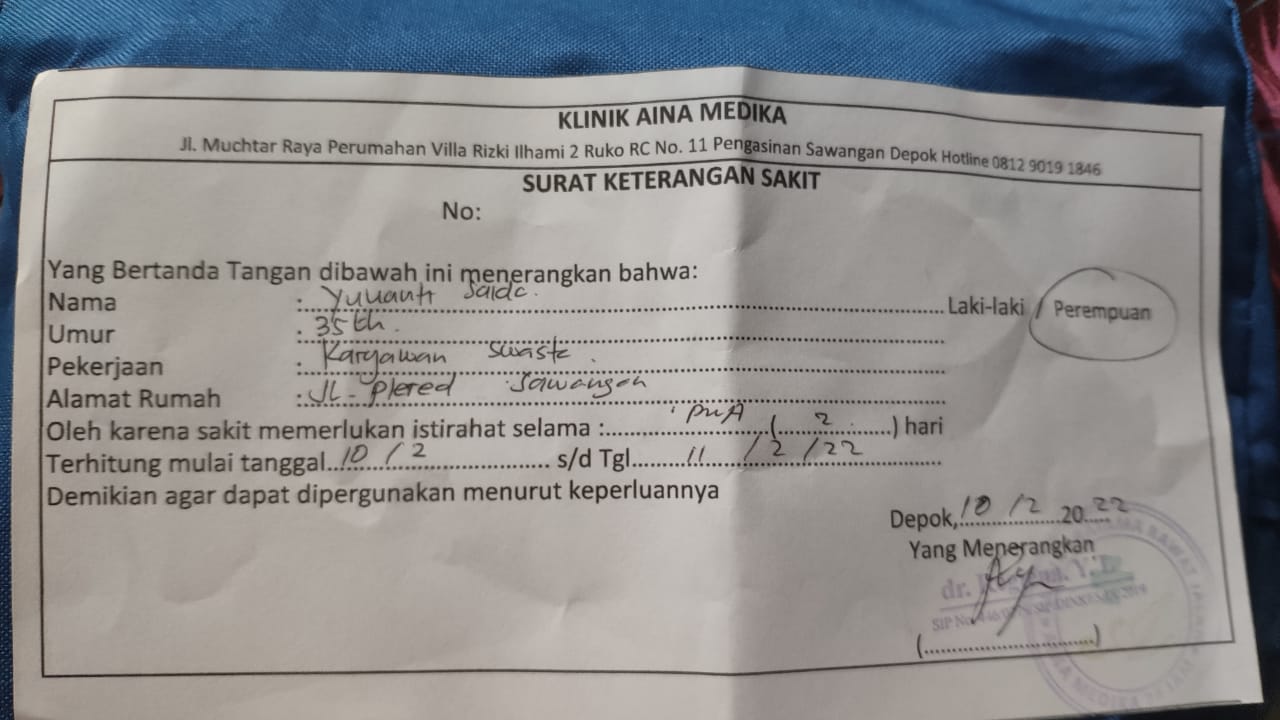 KLINIK AINA MEDIKA
Jl. Muchtar Raya Perumahan Villa Rizki Ilhami 2 Ruko RC No. 11 Pengasinan Sawangan Depok Hotline 0812 9019 1846
SURAT KETERANGAN SAKIT
No:
Yang Bertanda Tangan dibawah ini menerangkan bahwa:
Nama : Laki-laki / Perempuan
Umur : 35 th.
Pekerjaan : Karyawan swasta.
Alamat Rumah : JL. Plered Sawangan
Oleh karena sakit memerlukan istirahat selama : DUA ( 2 ) hari
Terhitung mulai tanggal 10 / 2 s/d Tgl 11 / 2 / 22
Demikian agar dapat dipergunakan menurut keperluannya
Depok, 10 / 2 2022
Yang Menerangkan
dr.
SIP No.
(..............................)